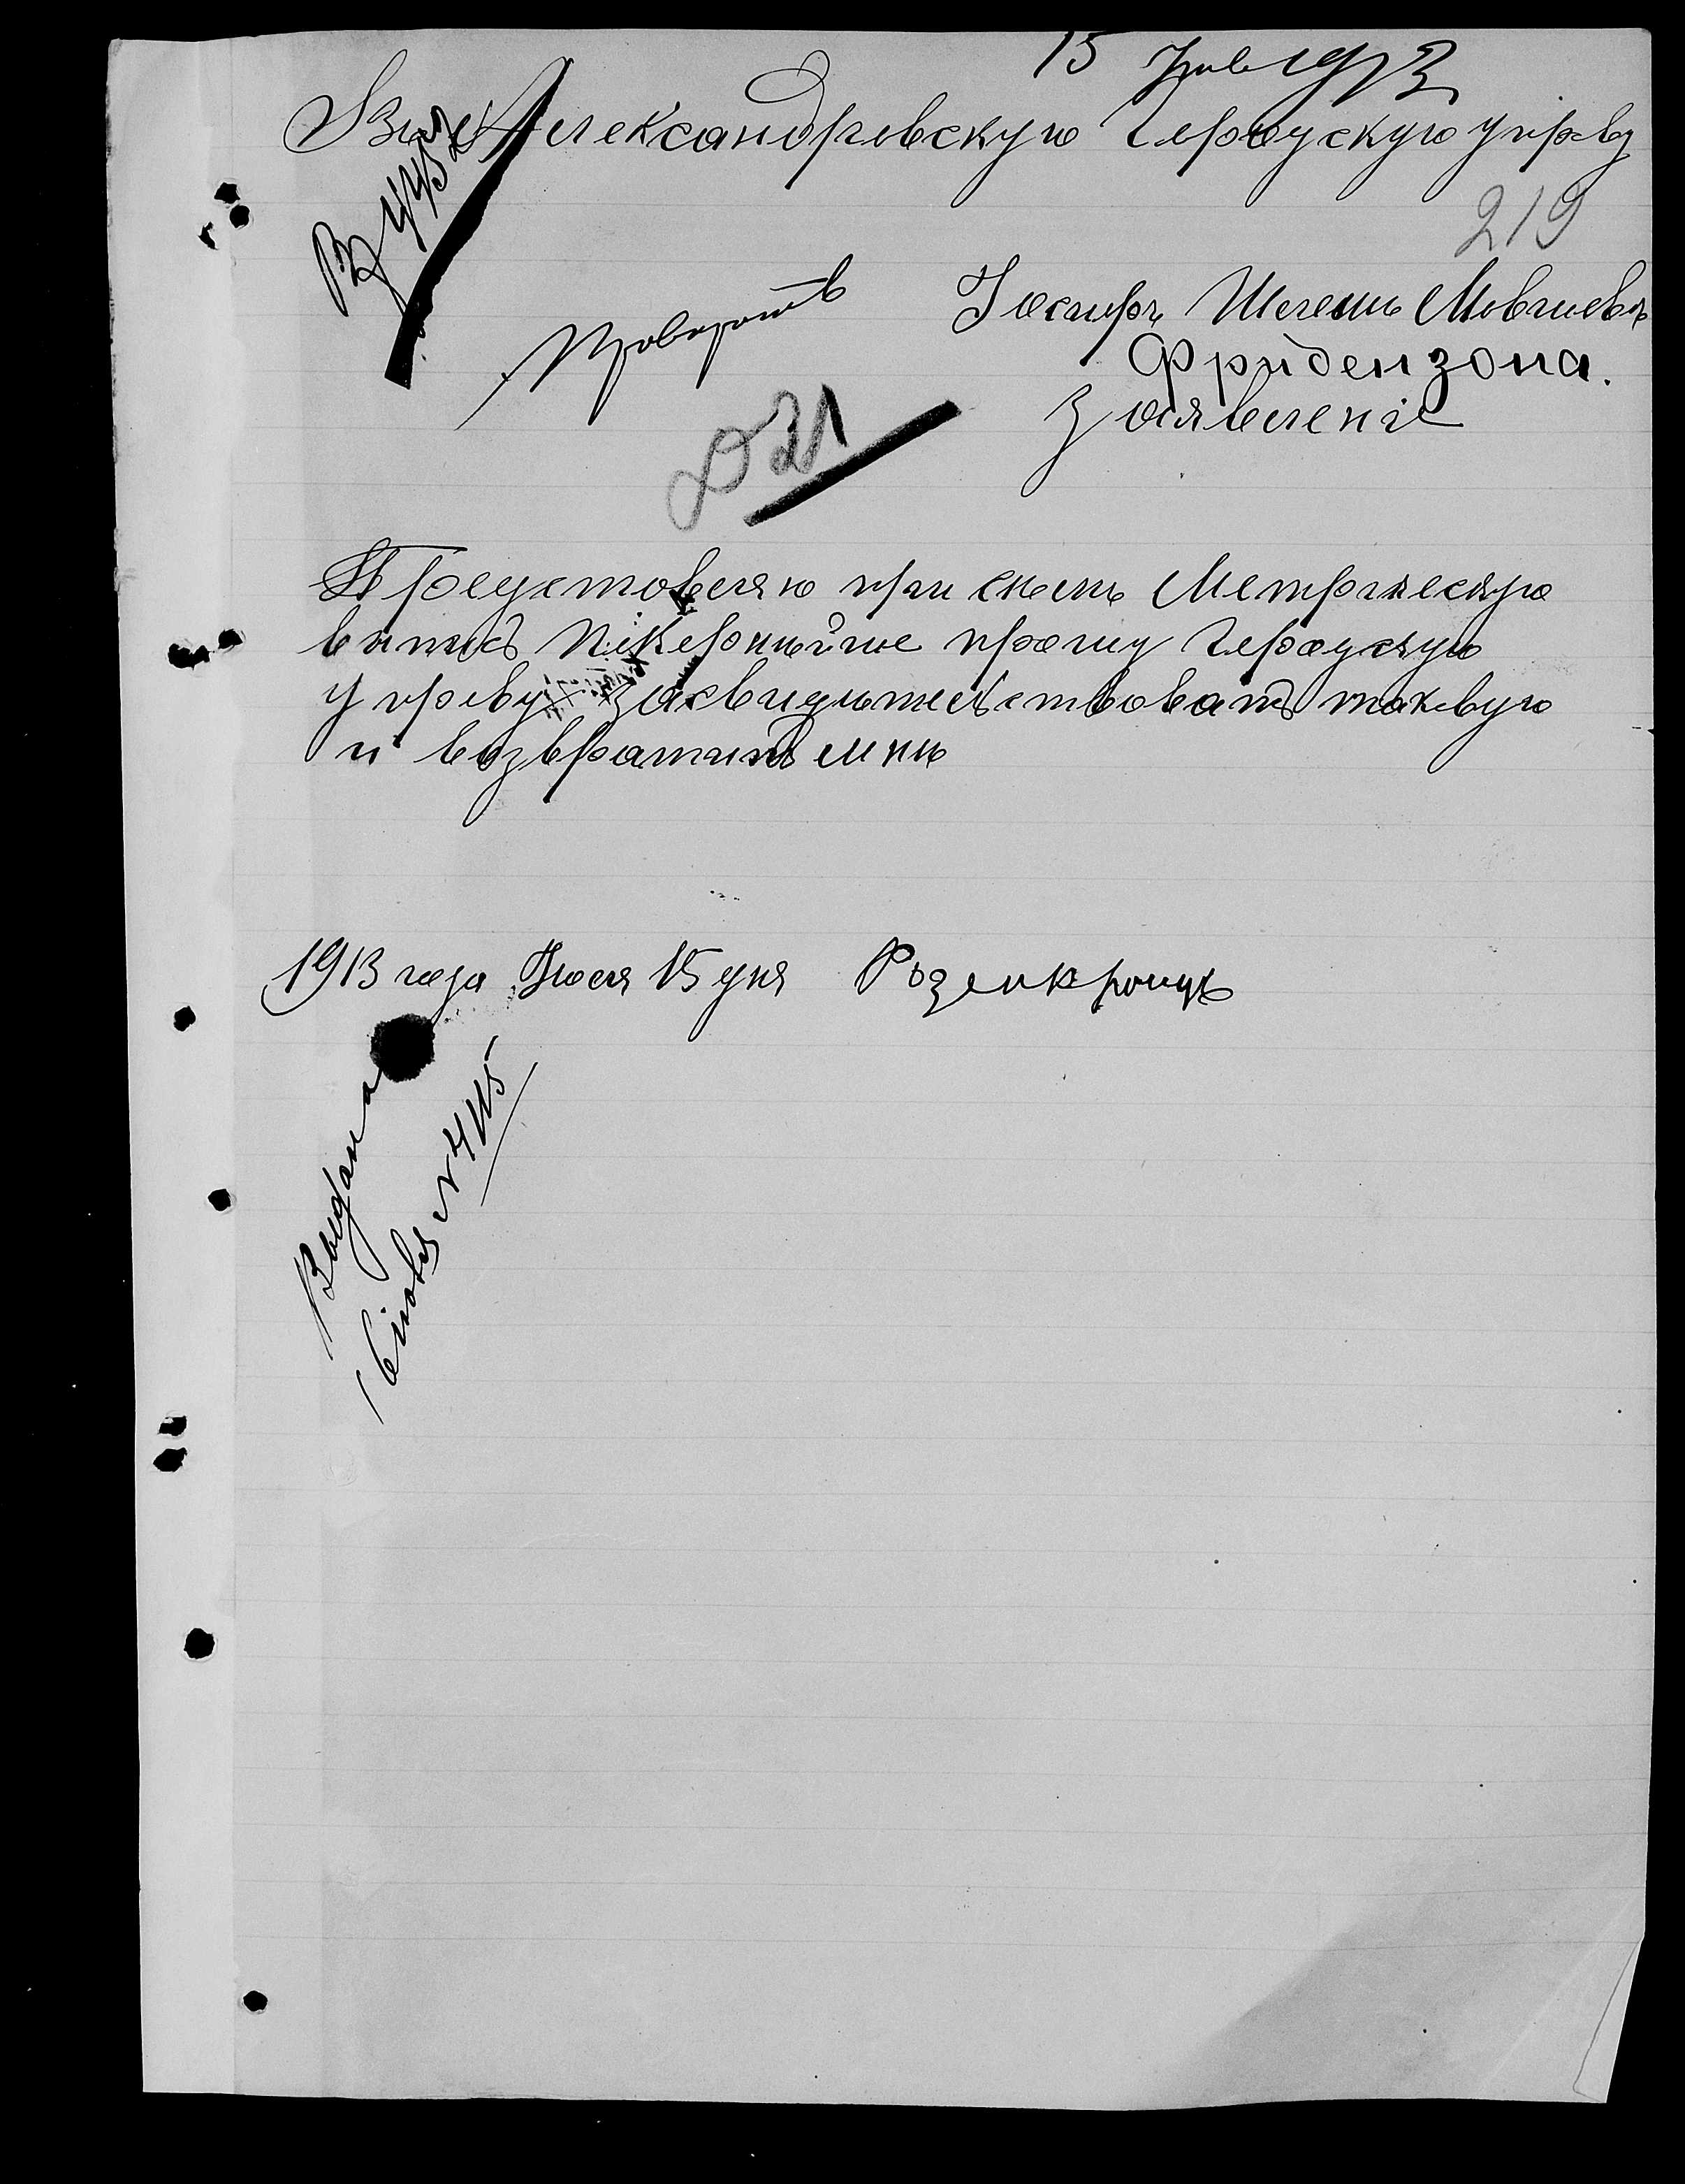 15 Июл 1913
Въ Александровскую Городскую управу
219
Вх 4452
Проверить
Іосифа Шлемы Мовшева
Фридензона.
Заявленіе
Д 31
Представляю при семъ Метрическую
выпись Покорнѣйше прошу Городскую
управу засвидѣтельствовать таковую
и возвратить мнѣ
1913 года Іюля 15 дня Розенкранцъ
Выдана
16 іюля № 4115